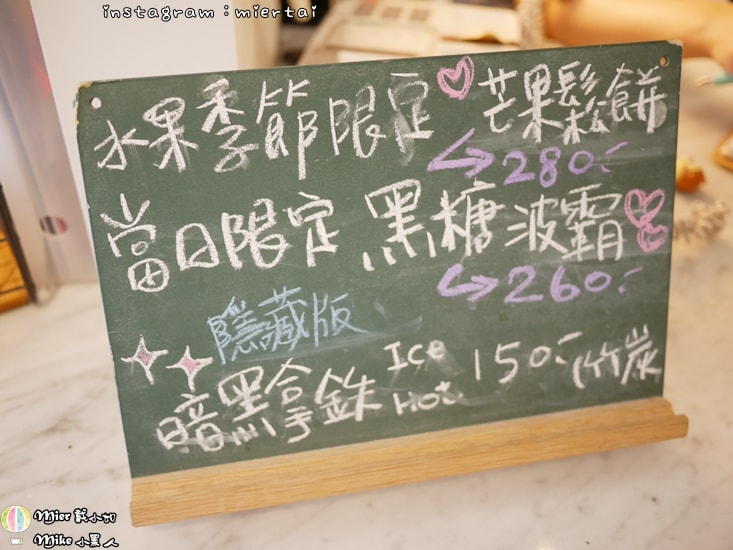 instagram：miertai
水果季節限定 芒果鬆餅
280.-
當日限定 黑糖波霸
260.-
隱藏版
暗黑拿鉄 Ice Hot 150.- (竹炭
Mier 戴小加
Mike 小黑人